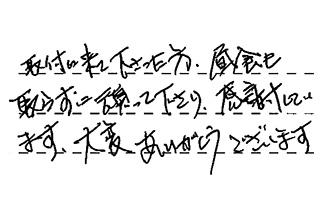 取付に来て下さった方、昼食も
取らずに頑張って下さり、感謝してい
ます、大変ありがとうございます